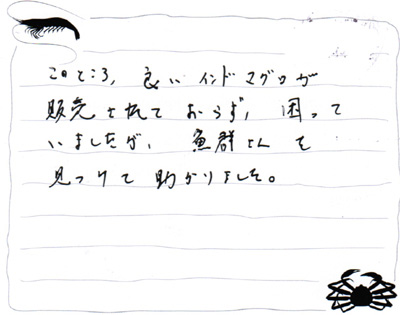 このところ、良いインドマグロが
販売されておらず、困って
いましたが、魚群さんを
見つけて助かりました。